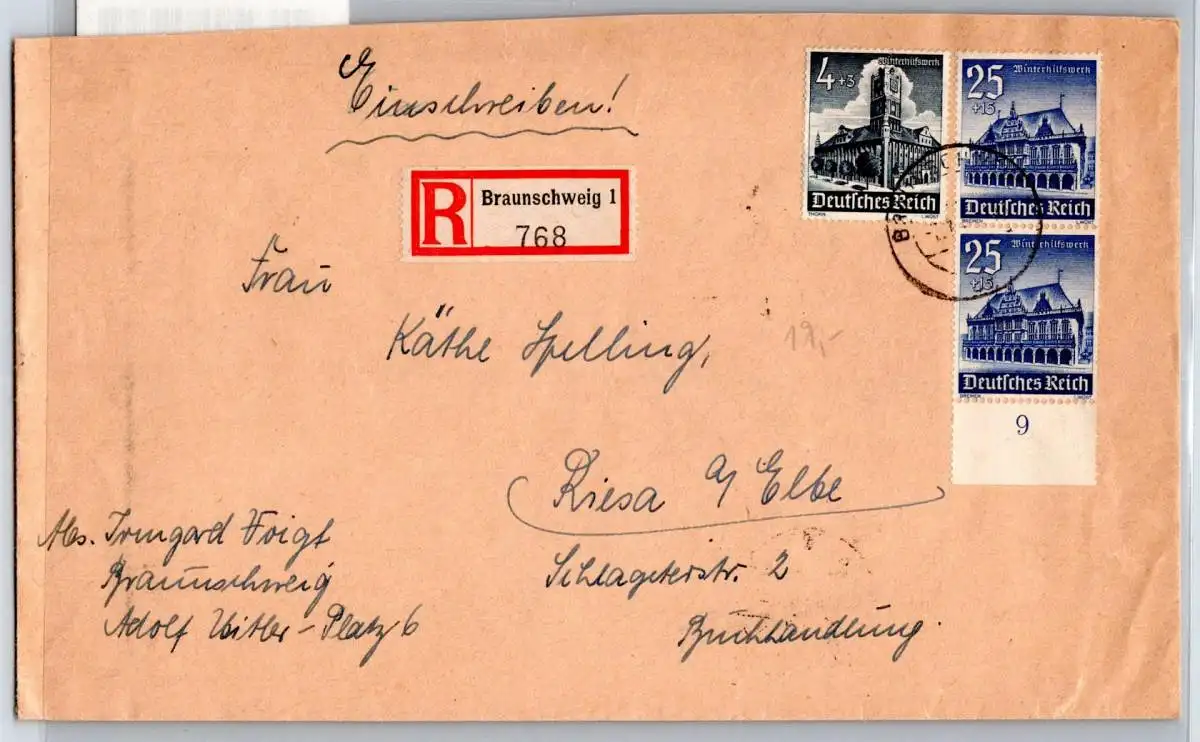 Einschreiben!
4+3
Winterhilfswerk
Deutsches Reich
THORN
25
+15
Winterhilfswerk
Deutsches Reich
BREMEN
R
Braunschweig 1
768
25
+15
Winterhilfswerk
Deutsches Reich
BREMEN
9
Frau
Käthe Spelling,
19,-
Riesa a/ Elbe
Schlageterstr. 2
Buchhandlung.
Abs. Irmgard Voigt
Braunschweig
Adolf Hitler-Platz 6